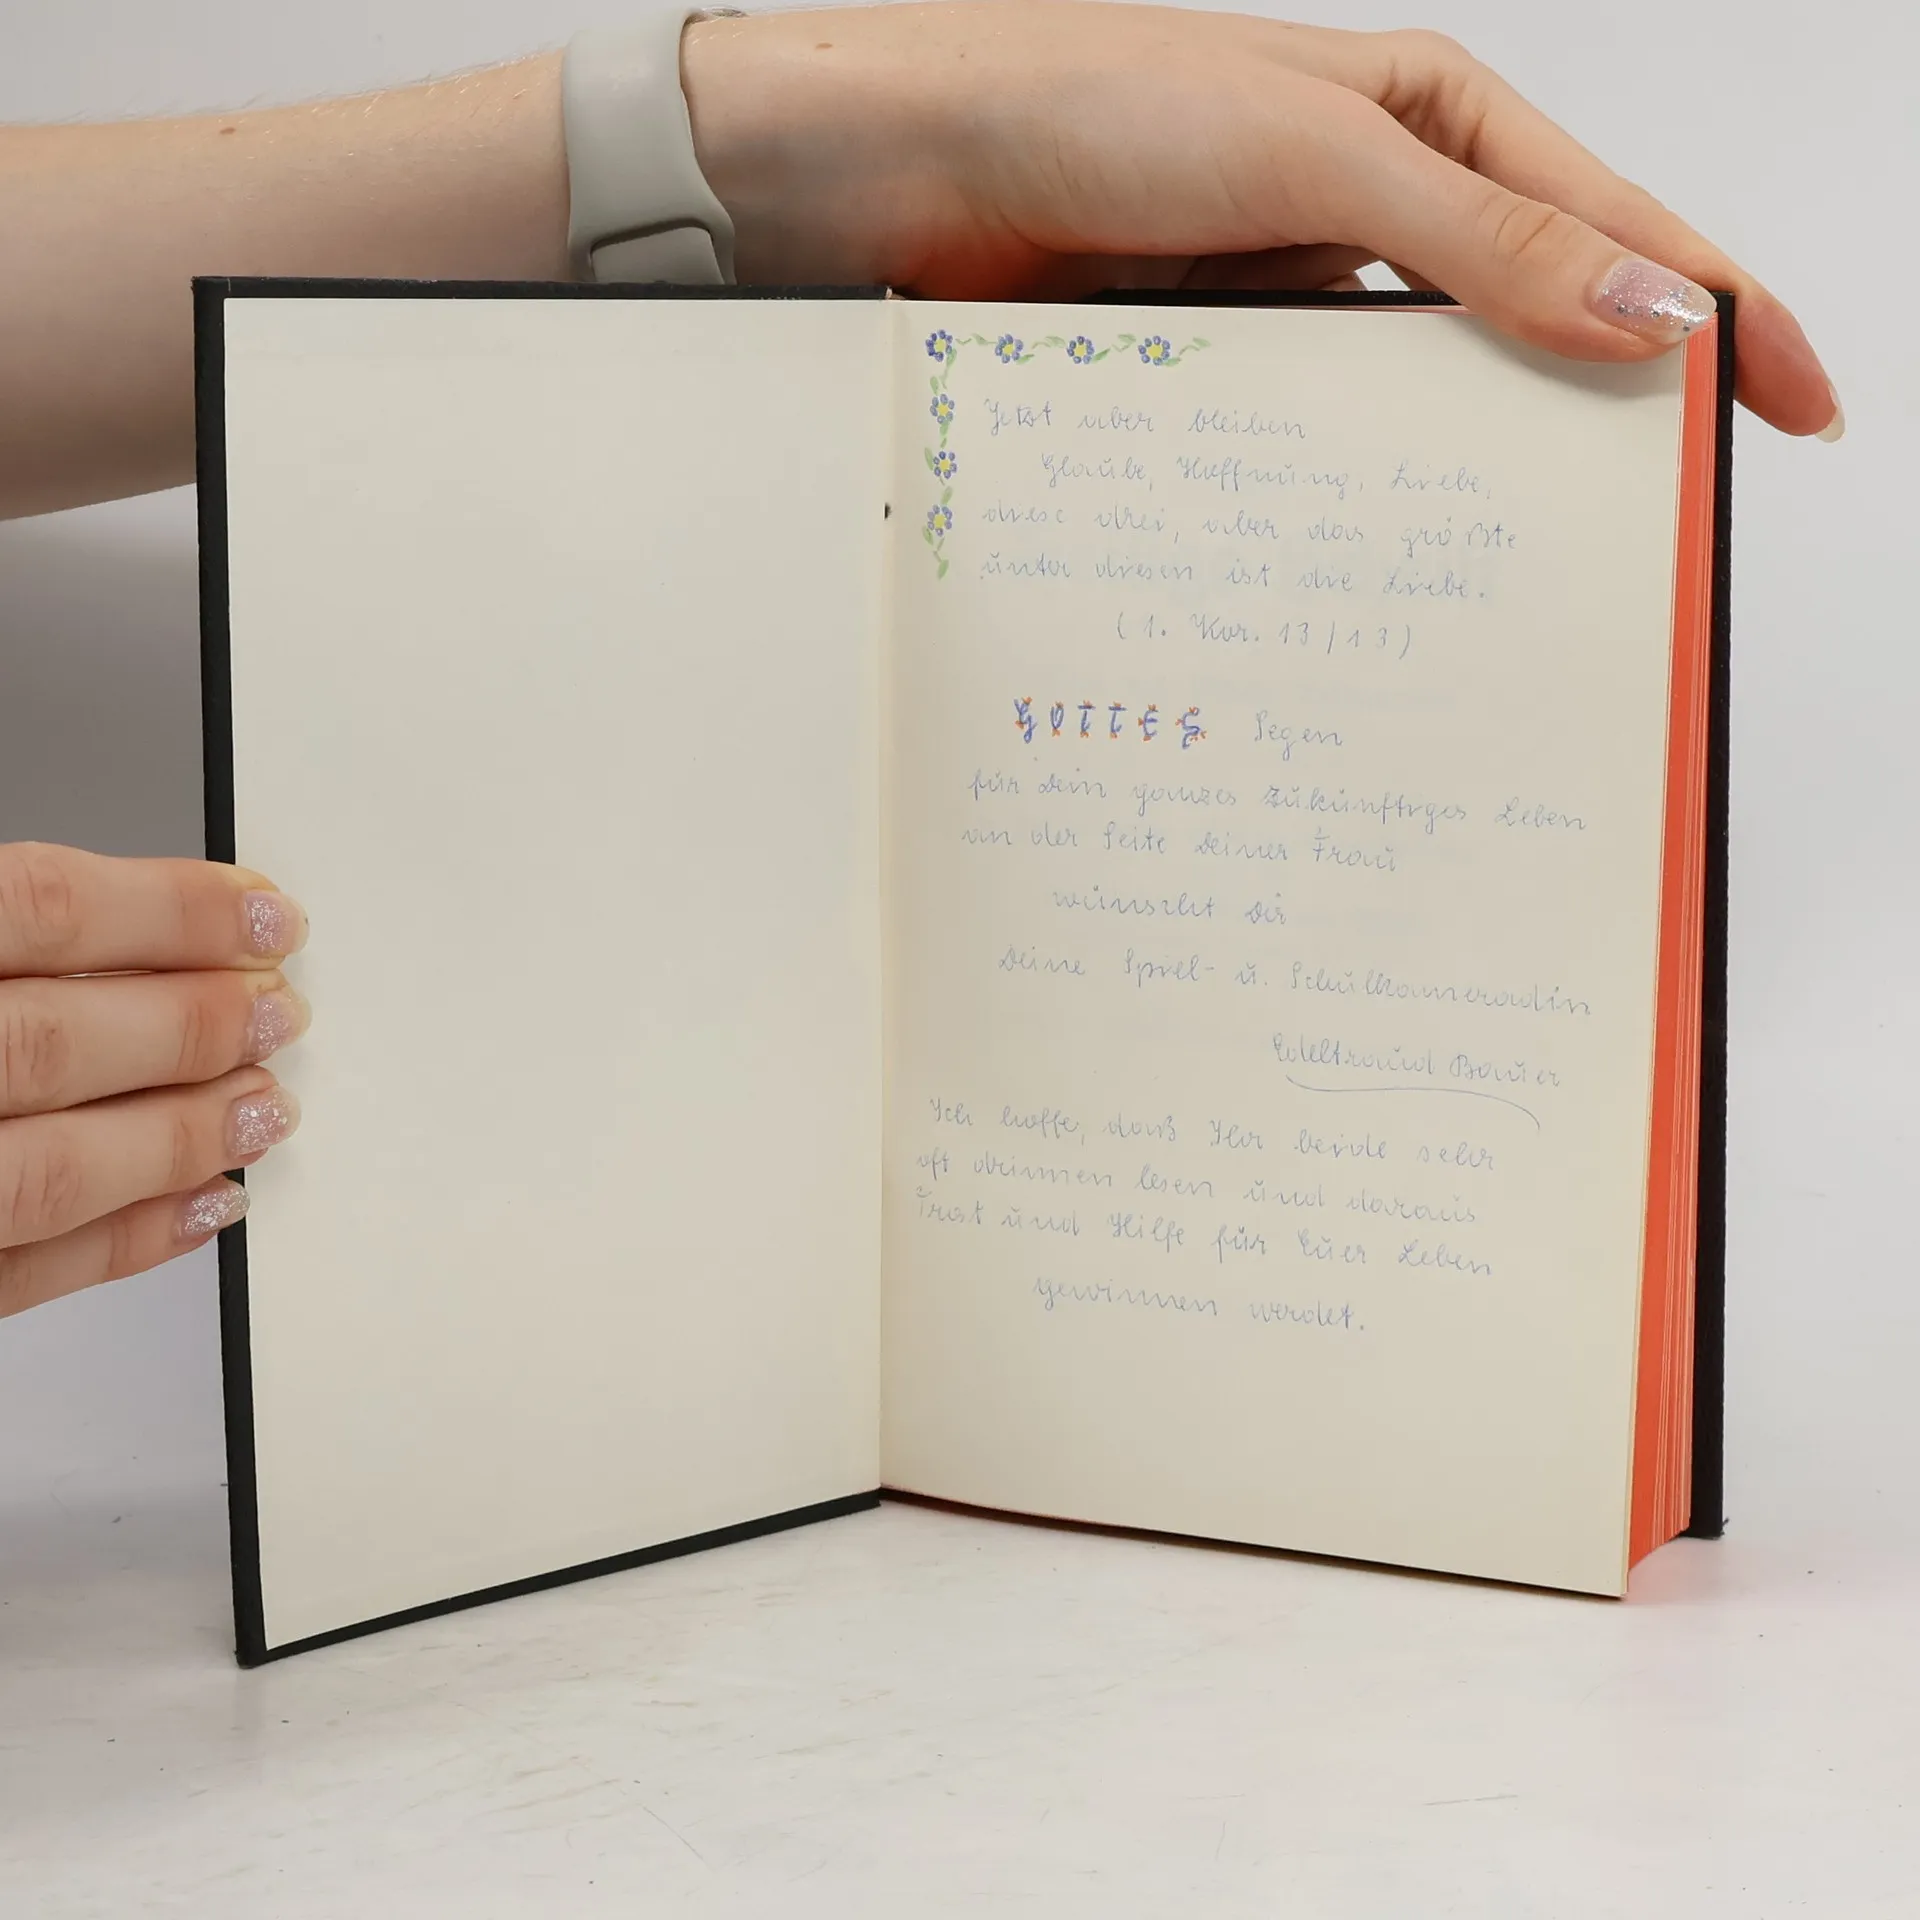 Jetzt aber bleiben
Glaube, Hoffnung, Liebe,
diese drei, aber das größte
unter diesen ist die Liebe.
(1. Kor. 13/13)
GOTTES Segen
für Dein ganzes zukünftiges Leben
an der Seite Deiner Frau
wünscht Dir
Deine Spiel- u. Schulkameradin
Edeltraud Bauer
Ich hoffe, daß Ihr beide sehr
oft drinnen lesen und daraus
Trost und Hilfe für Euer Leben
gewinnen werdet.